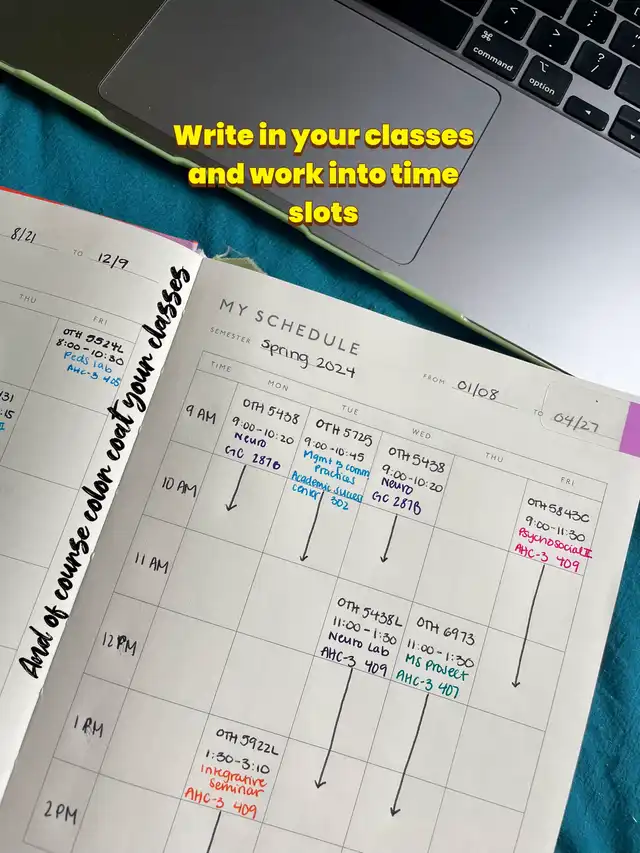 command
option
Write in your classes
and work into time
slots
8/21 TO 12/9
THU
FRI
OTH 5524L
8:00-10:30
Peds lab
AHC-3 405
And of course color coat your classes
MY SCHEDULE
SEMESTER Spring 2024
FROM 01/08 TO 04/27
TIME MON TUE WED THU FRI
9 AM
OTH 5438
9:00-10:20
Neuro
GC 287B
OTH 5725
9:00-10:45
Mgmt & comm
Practices
Academic Success
center 302
OTH 5438
9:00-10:20
Neuro
GC 287B
OTH 5843C
9:00-11:30
Psychosocial II
AHC-3 409
10 AM
11 AM
OTH 5438L
11:00-1:30
Neuro Lab
AHC-3 409
OTH 6973
11:00-1:30
MS Project
AHC-3 407
12 PM
1 PM
OTH 5922L
1:30-3:10
Integrative
Seminar
AHC-3 409
2 PM